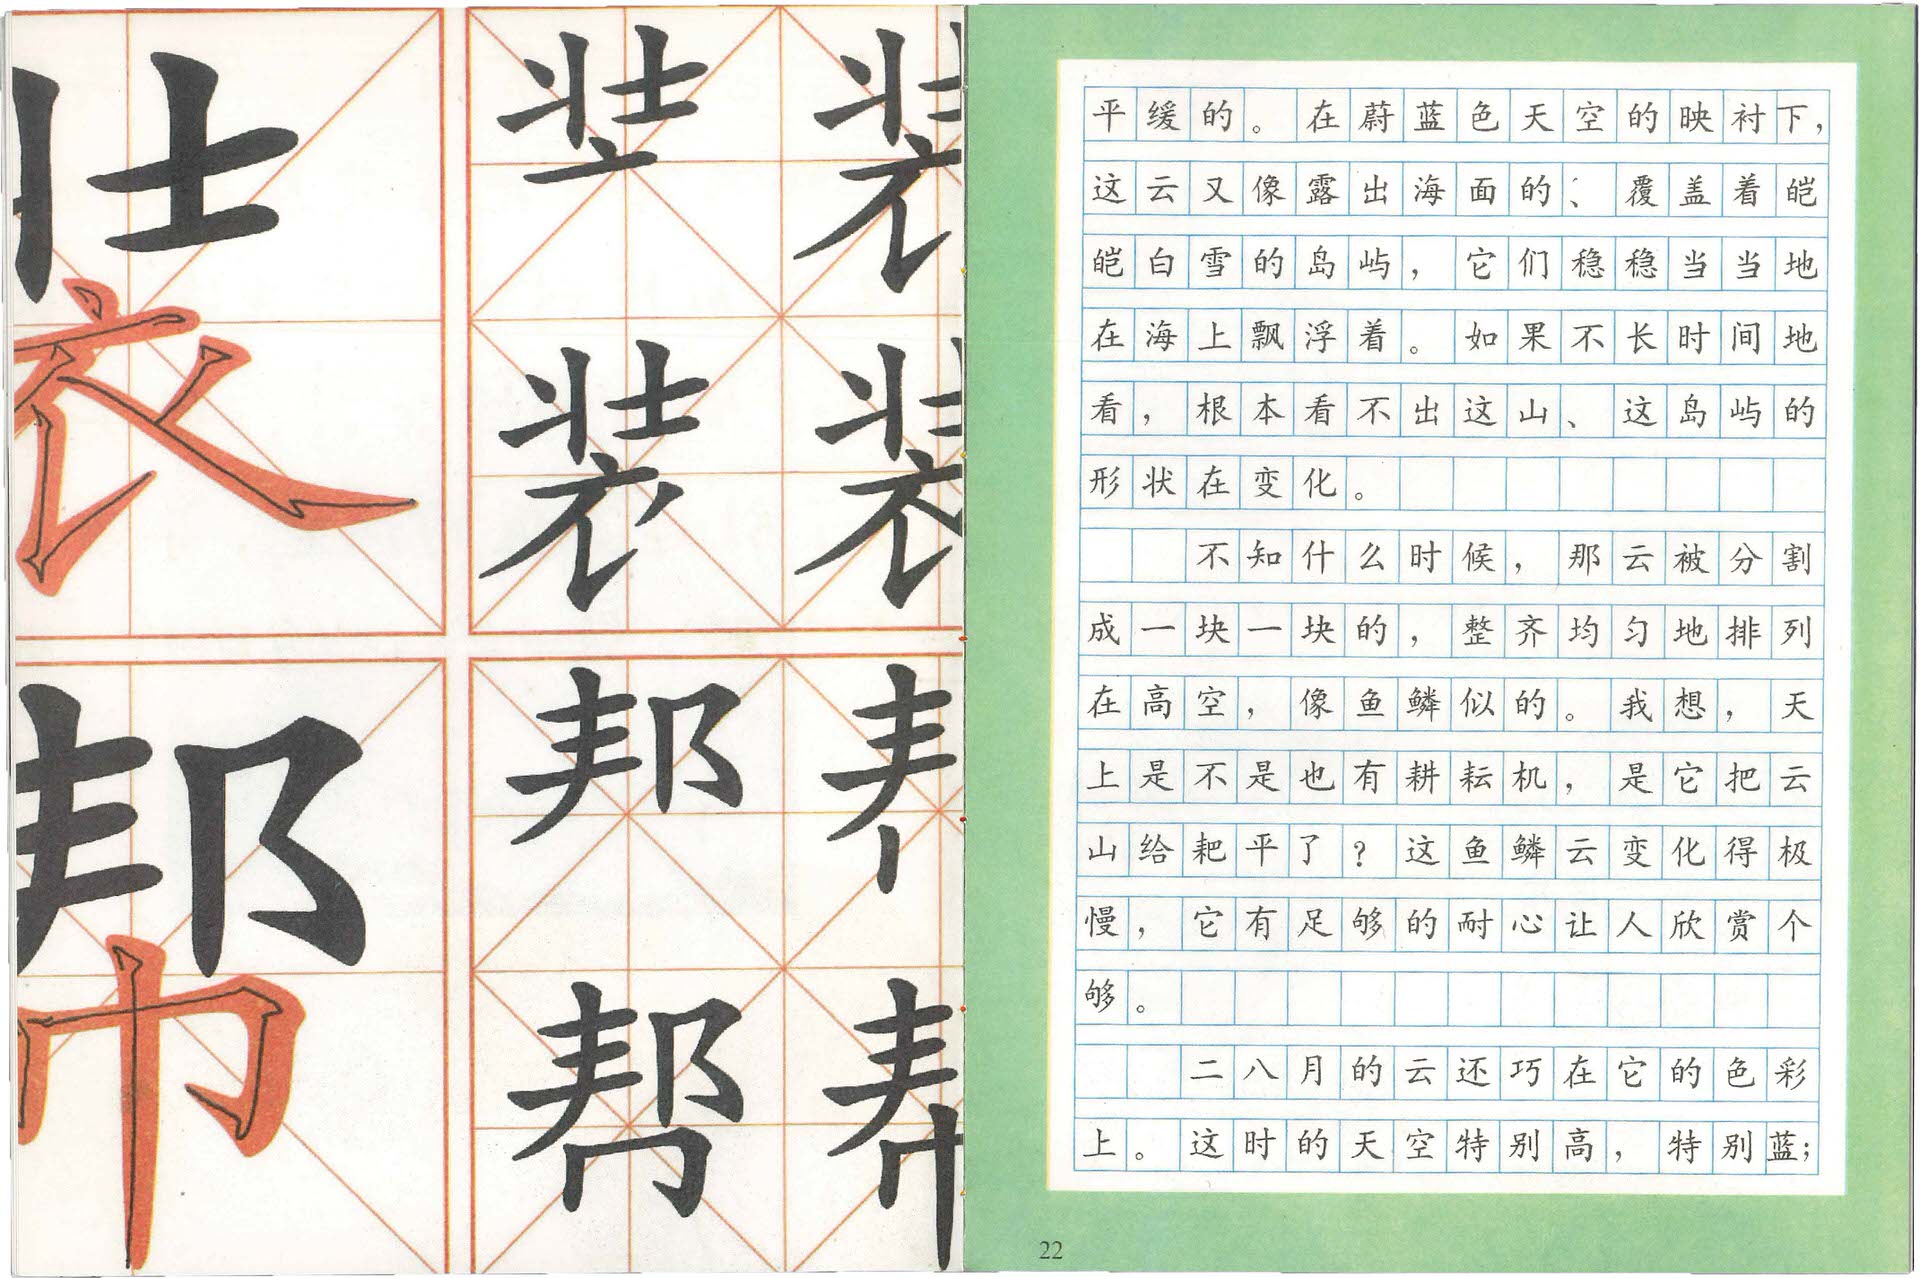 装
装
装
装
帮
帮
平缓的。在蔚蓝色天空的映衬下,
这云又像露出海面的、覆盖着皑
皑白雪的岛屿,它们稳稳当当地
在海上飘浮着。如果不长时间地
看,根本看不出这山、这岛屿的
形状在变化。
不知什么时候,那云被分割
成一块一块的,整齐均匀地排列
在高空,像鱼鳞似的。我想,天
上是不是也有耕耘机,是它把云
山给耙平了?这鱼鳞云变化得极
慢,它有足够的耐心让人欣赏个
够。
二八月的云还巧在它的色彩
上。这时的天空特别高,特别蓝;
22